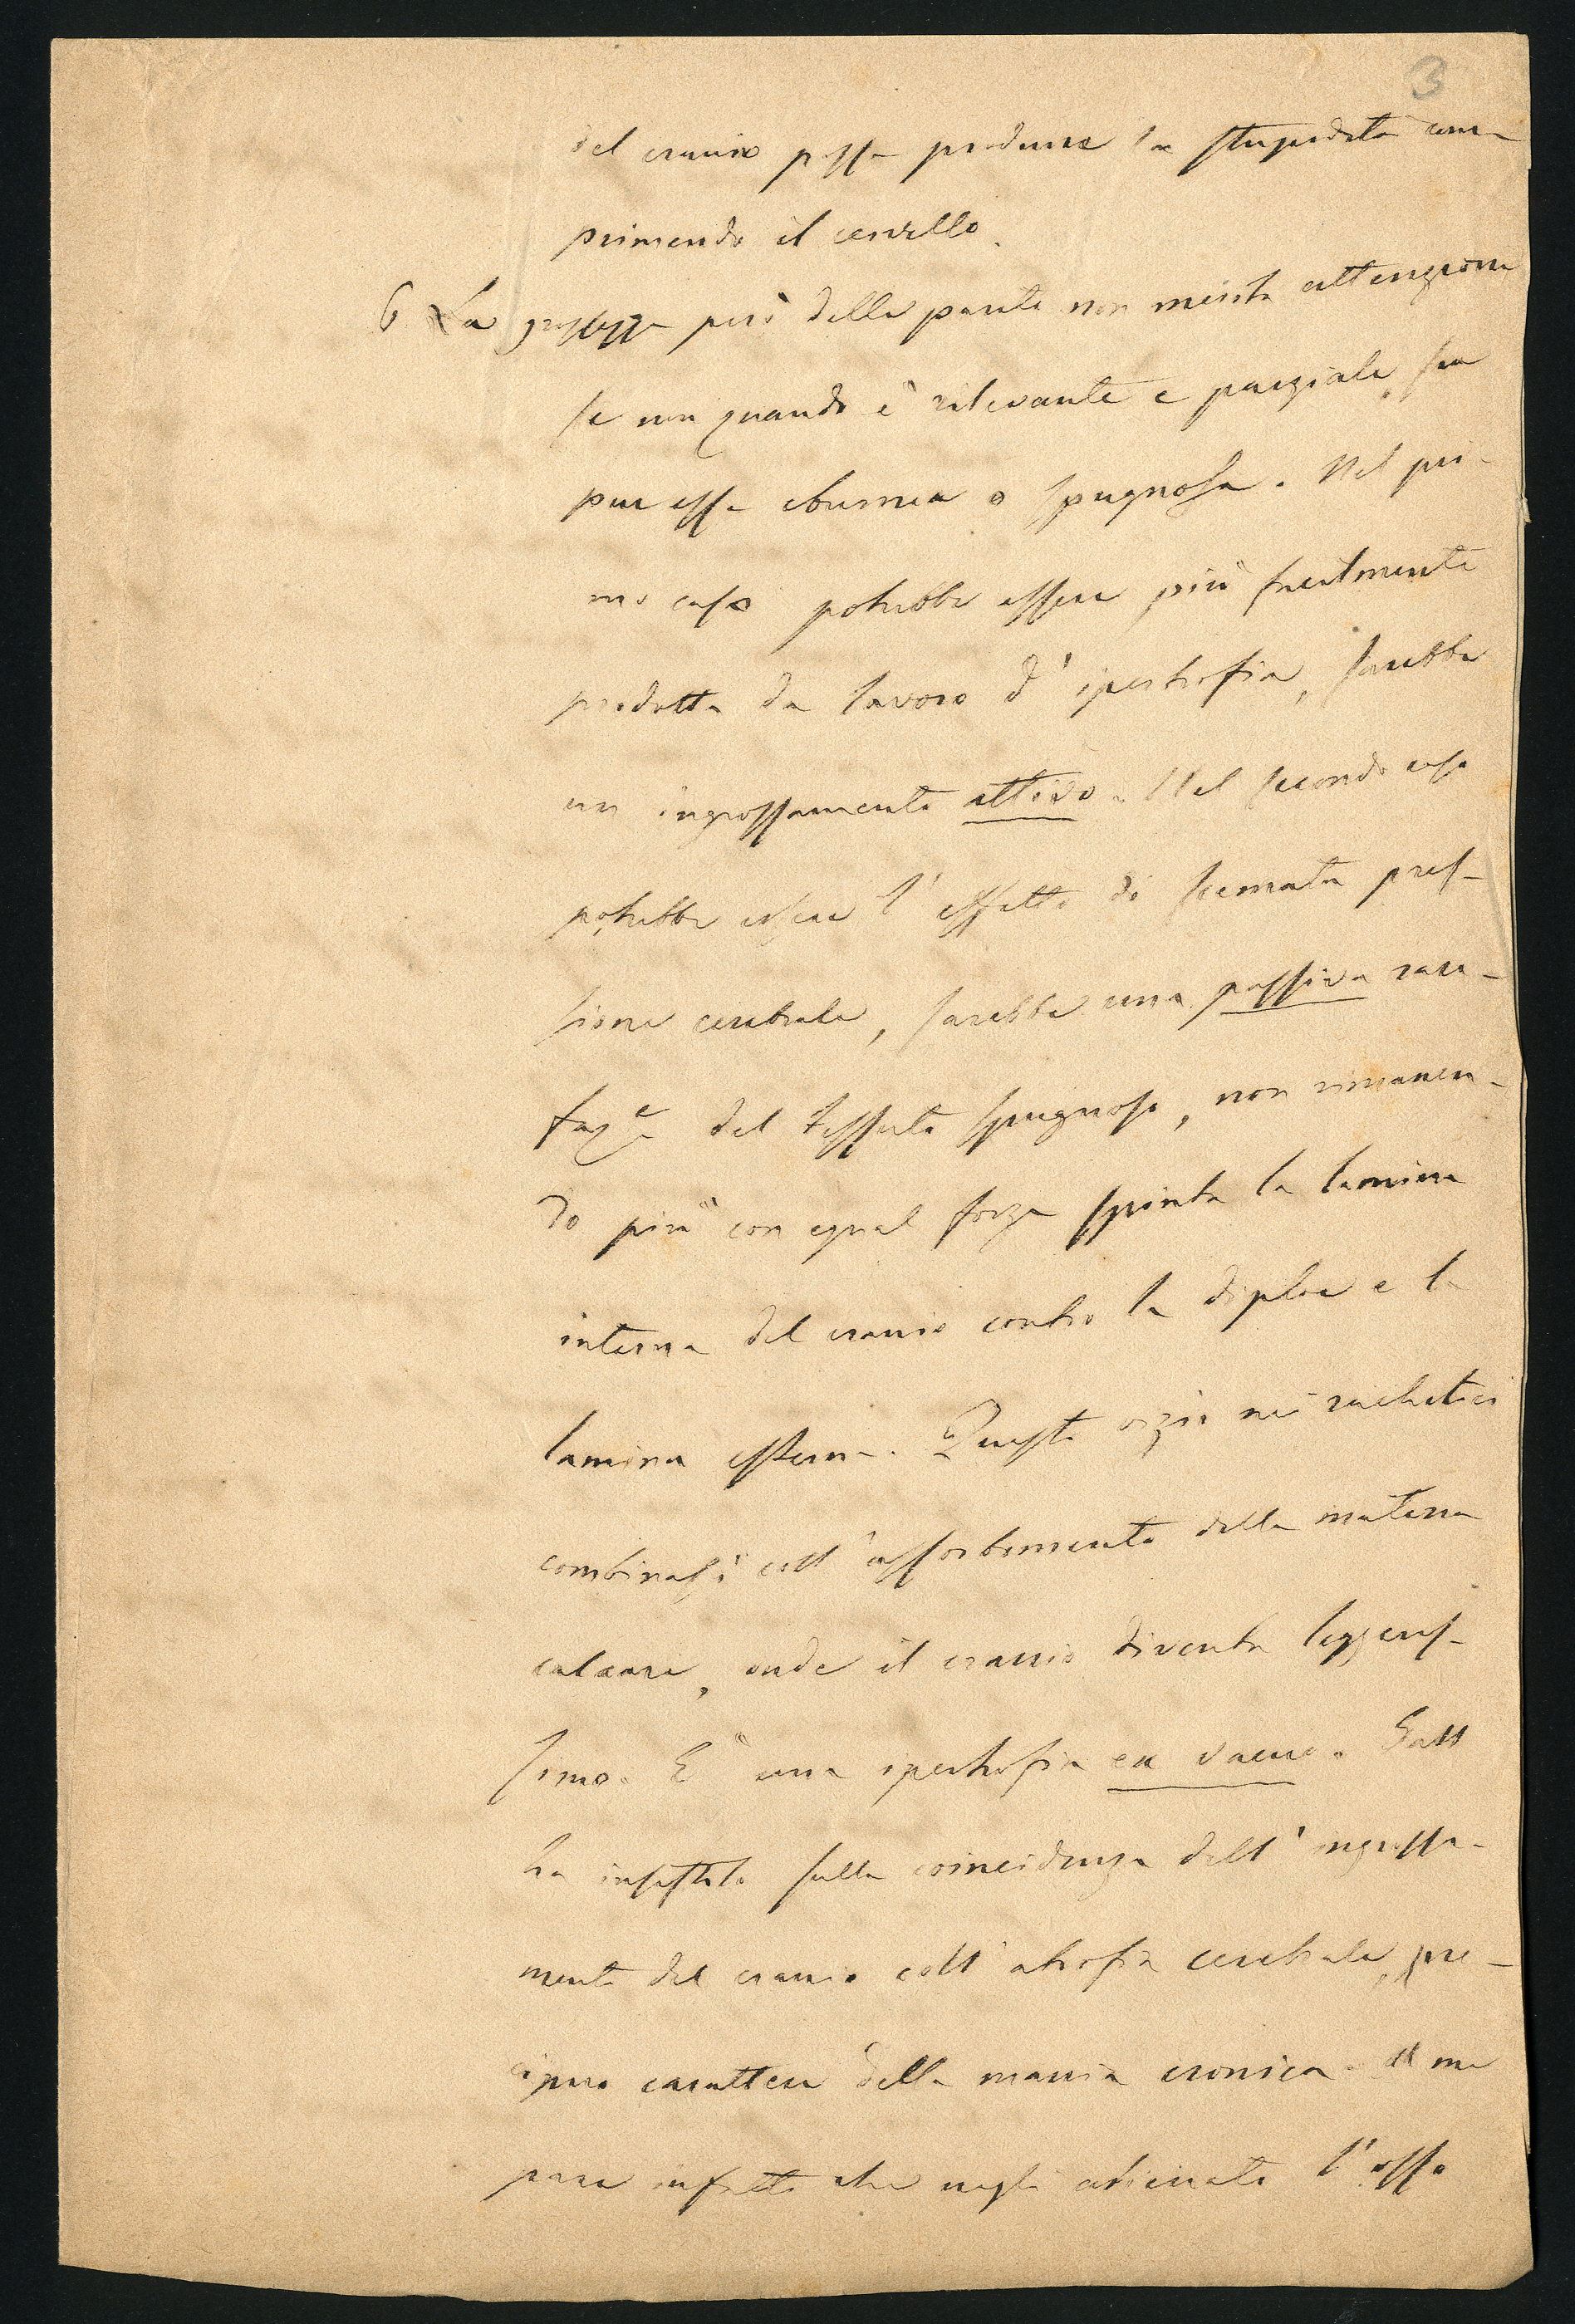 3
del cranio possa produrre la stupidità com-
primendo il cervello.
6 La grossezza però delle pareti non merita attenzione
se non quando è rilevante e parziale, sia
pur essa eburnea o spugnosa. Nel pri-
mo caso potrebbe essere più facilmente
prodotta da lavoro d'ipertrofia, sarebbe
un ingrossamento attivo. Nel secondo caso
potrebbe essere l'effetto di scemata pres-
sione cerebrale, sarebbe una passiva rare-
faz.e del tessuto spugnoso, non rimanen-
do più con egual forza spinta la lamina
interna del cranio contro la diploe e la
lamina esterna. Questo vizio nei rachitici
combinasi coll'assorbimento della materia
calcare, onde il cranio diventa leggeris-
simo. È una ipertrofia ex vacuo. Gall
ha insistito sulla coincidenza dell'ingrossa-
mento del cranio coll'atrofia cerebrale, pre-
cipuo carattere della mania cronica. A me
pare infatti che negli alienati l'osso